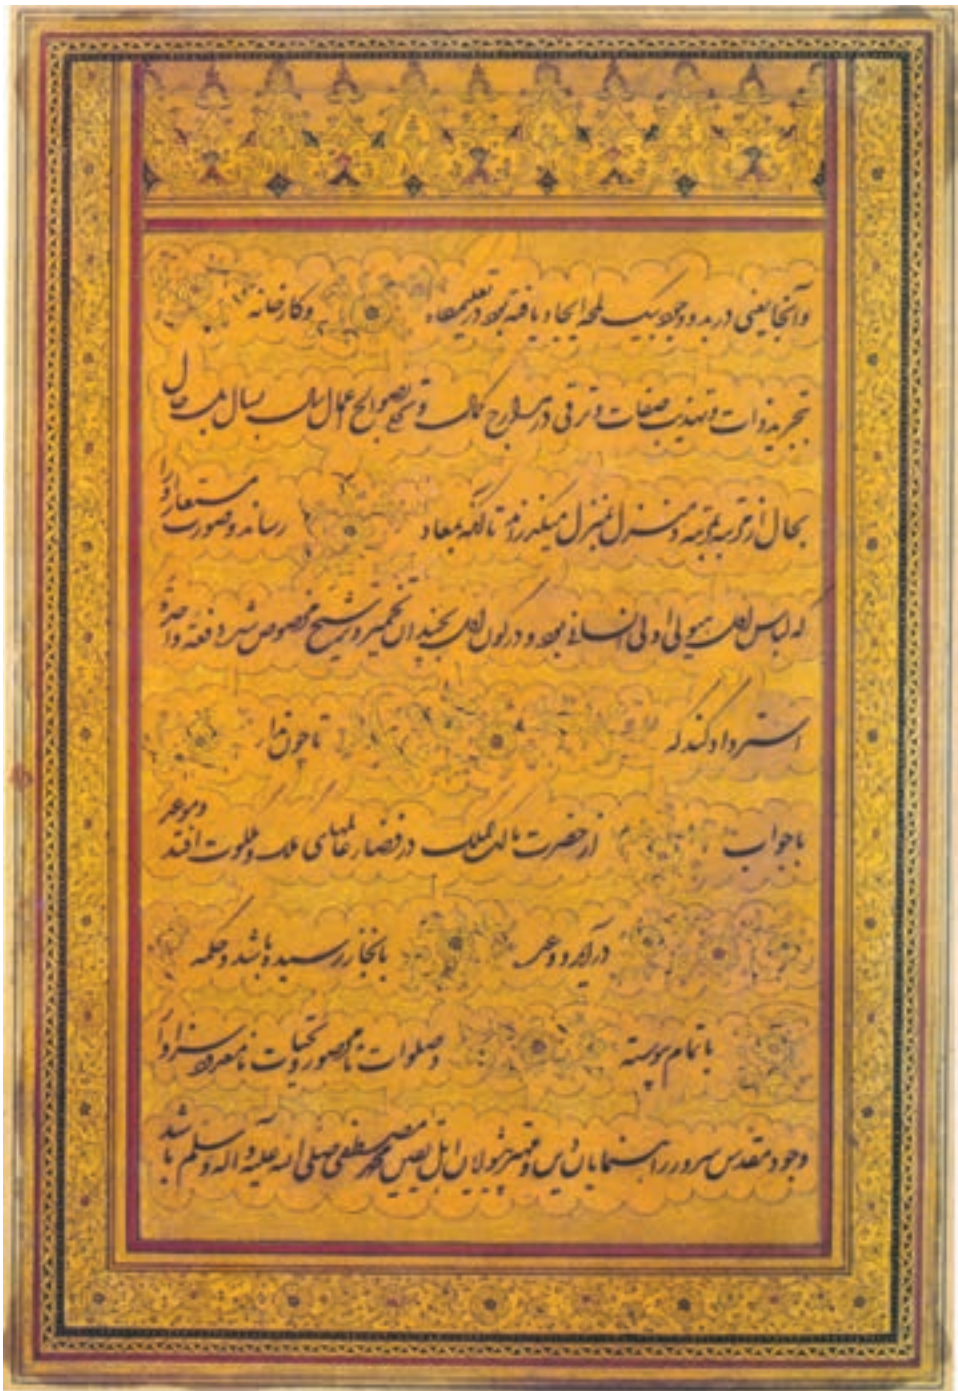 وآنجا یعنی در بدو وجود بیک لمحه ایجاد یافته بود در تعلیمگاه وکارخانه
تجرید ذوات و تهذیب صفات و ترقی در مدارج کمال و اعمال سال بسال
بحال از مرتبه بمرتبه و منزل بمنزل میگذرد تا آنکه بمعاد رساند و صورت مستعار را
که لباس آن هیولی اولی بود و در کون آن بچندان تخمیر و ترشیح مخصوص شد دفعة واحدة
استرداد کند که تا چون
با جواب از حضرت مالک الملک در فضای عالمهای ملک و ملکوت افتد
در آید و وعد بانجاز رسیده باشد و حکمه
باتمام پیوسته و صلوات نامحصور و تحیات نامعدود سزاوار
وجود مقدس سرور راهنمایان دین و مهتر اهل یقین محمد مصطفی صلی الله علیه و آله وسلم باشد